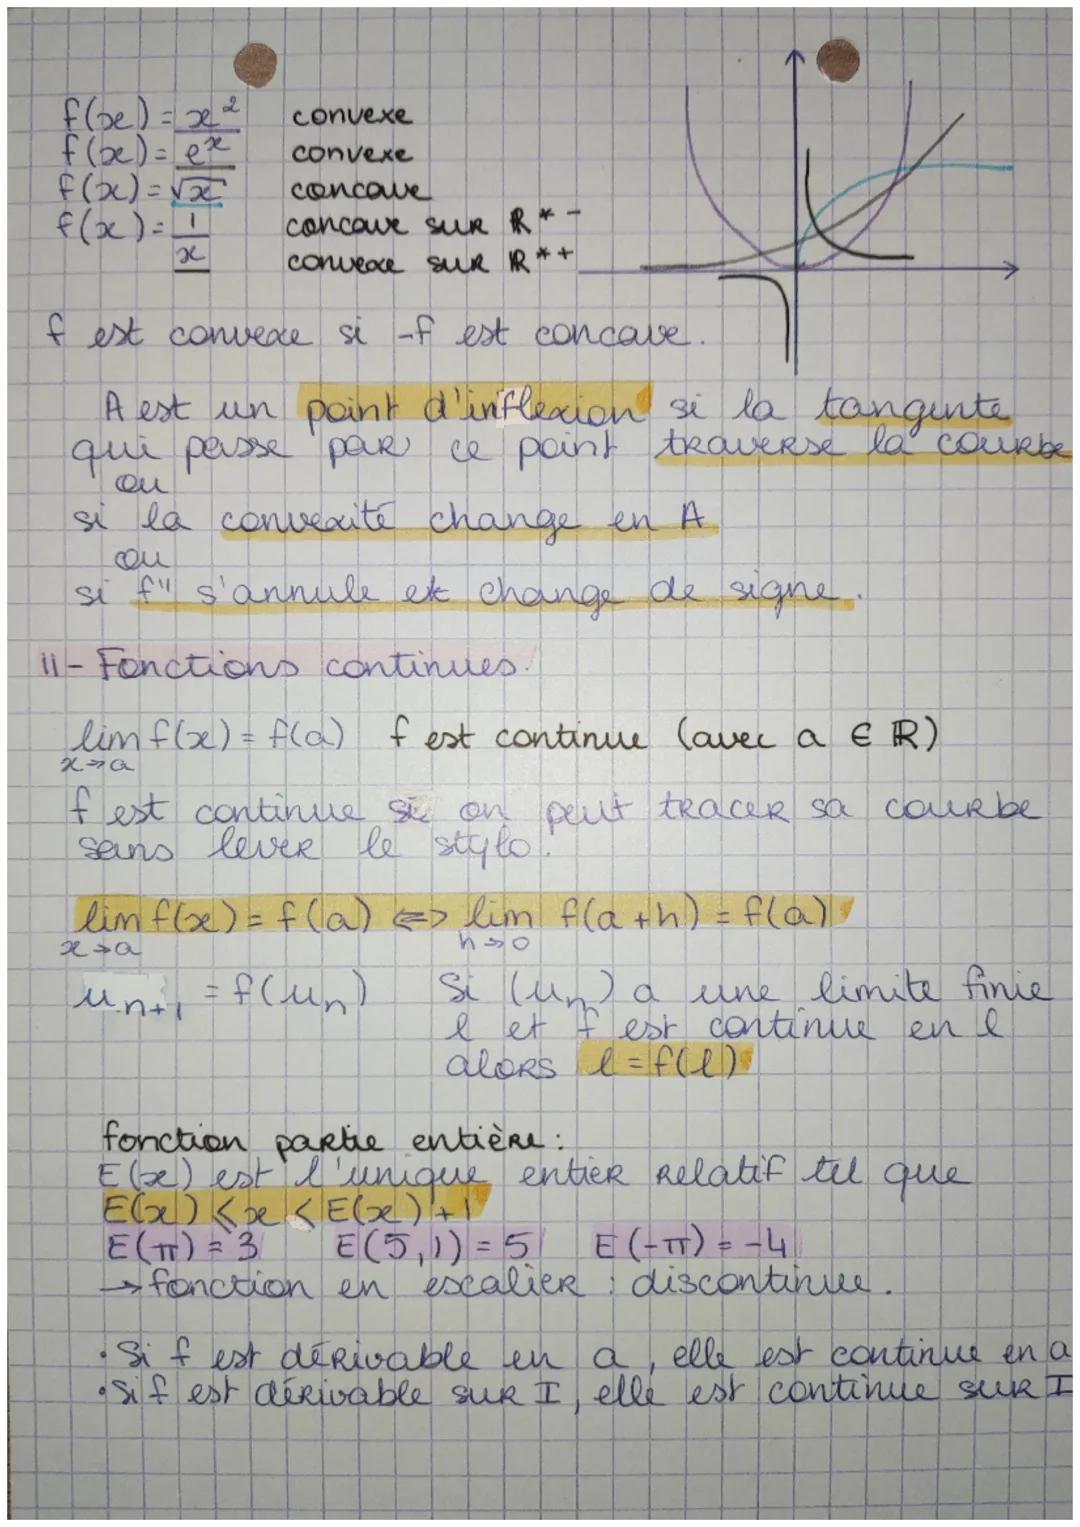 f(x) = x² convexe
f(x) = eˣ convexe
f(x) = √x concave
f(x) = 1/x concave sur ℝ*⁻
convexe sur ℝ*⁺
f est convexe si -f est concave.
A est un point d'inflexion si la tangente
qui passe par ce point traverse la courbe
ou
si la convexité change en A
ou
si f'' s'annule et change de signe.
II - Fonctions continues.
lim f(x) = f(a) f est continue (avec a ∈ ℝ)
x→a
f est continue si on peut tracer sa courbe
sans lever le stylo.
lim f(x) = f(a) ⇔ lim f(a+h) = f(a)
x→a h→0
uₙ₊₁ = f(uₙ) Si (uₙ) a une limite finie
l et f est continue en l
alors l = f(l)
fonction partie entière :
E(x) est l'unique entier relatif tel que
E(x) ⩽ x < E(x) + 1
E(π) = 3 E(5,1) = 5 E(-π) = -4
→ fonction en escalier : discontinue.
• Si f est dérivable en a, elle est continue en a
• Si f est dérivable sur I, elle est continue sur I